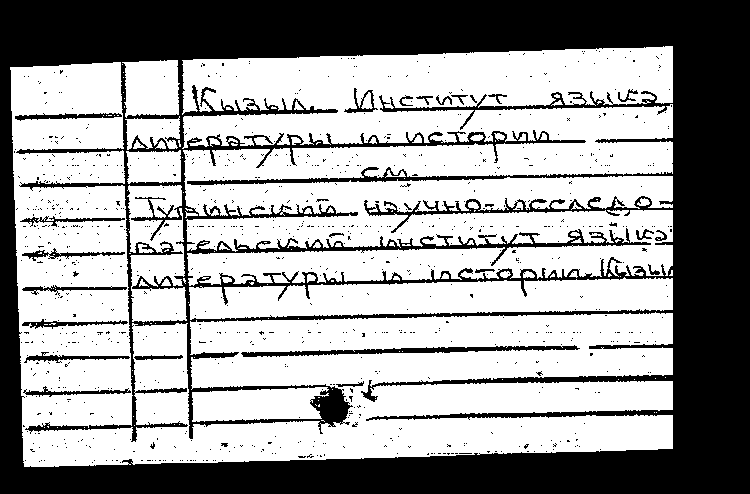 Кызыл. Институт языка,
литературы и истории
см.
Тувинский научно-исследо-
вательский институт языка
литературы и истории. Кызыл